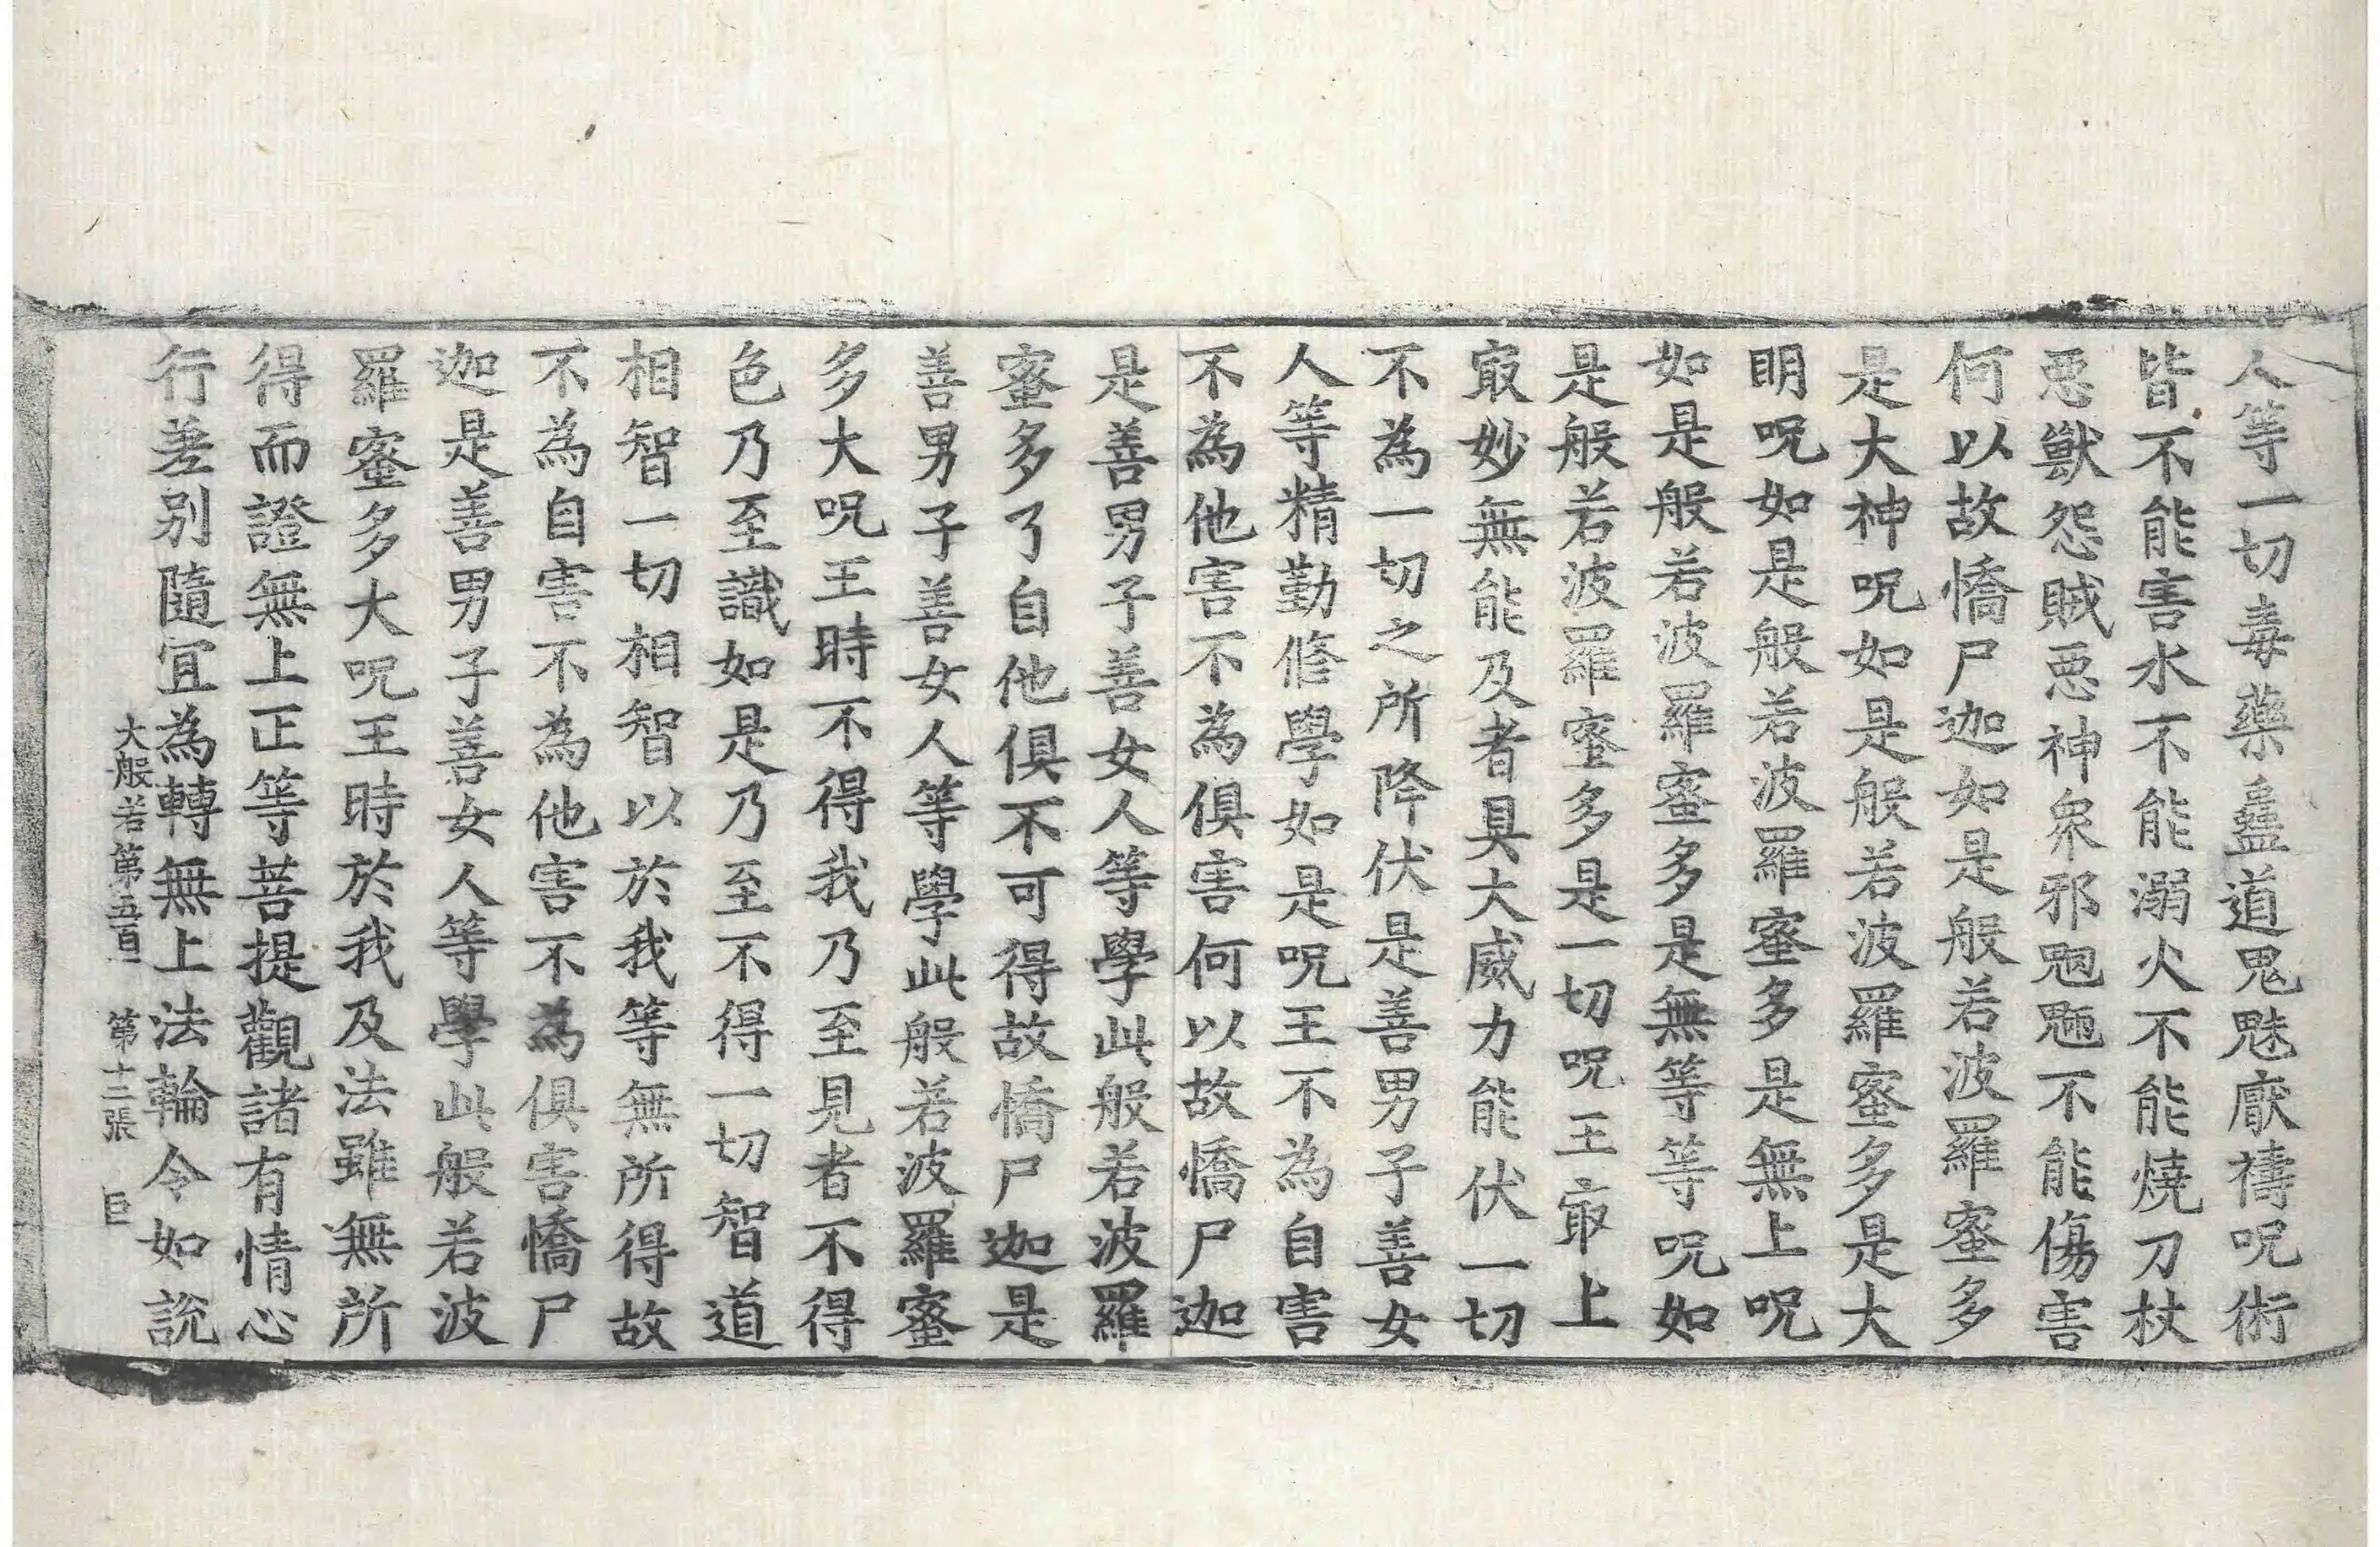 人等一切毒藥蠱道鬼魅厭禱呪術
皆不能害水不能溺火不能燒刀杖
惡獸怨賊惡神衆邪魍魎不能傷害
何以故憍尸迦如是般若波羅蜜多
是大神呪如是般若波羅蜜多是大
明呪如是般若波羅蜜多是無上呪
如是般若波羅蜜多是無等等呪如
是般若波羅蜜多是一切呪王㝡上
㝡妙無能及者具大威力能伏一切
不為一切之所降伏是善男子善女
人等精勤修學如是呪王不為自害
不為他害不為俱害何以故憍尸迦
是善男子善女人等學此般若波羅
蜜多了自他俱不可得故憍尸迦是
善男子善女人等學此般若波羅蜜
多大呪王時不得我乃至見者不得
色乃至識如是乃至不得一切智道
相智一切相智以於我等無所得故
不為自害不為他害不為俱害憍尸
迦是善男子善女人等學此般若波
羅蜜多大呪王時於我及法雖無所
得而證無上正等菩提觀諸有情心
行差別隨宜為轉無上法輪令如說
大般若第五百一 第十二張 巨